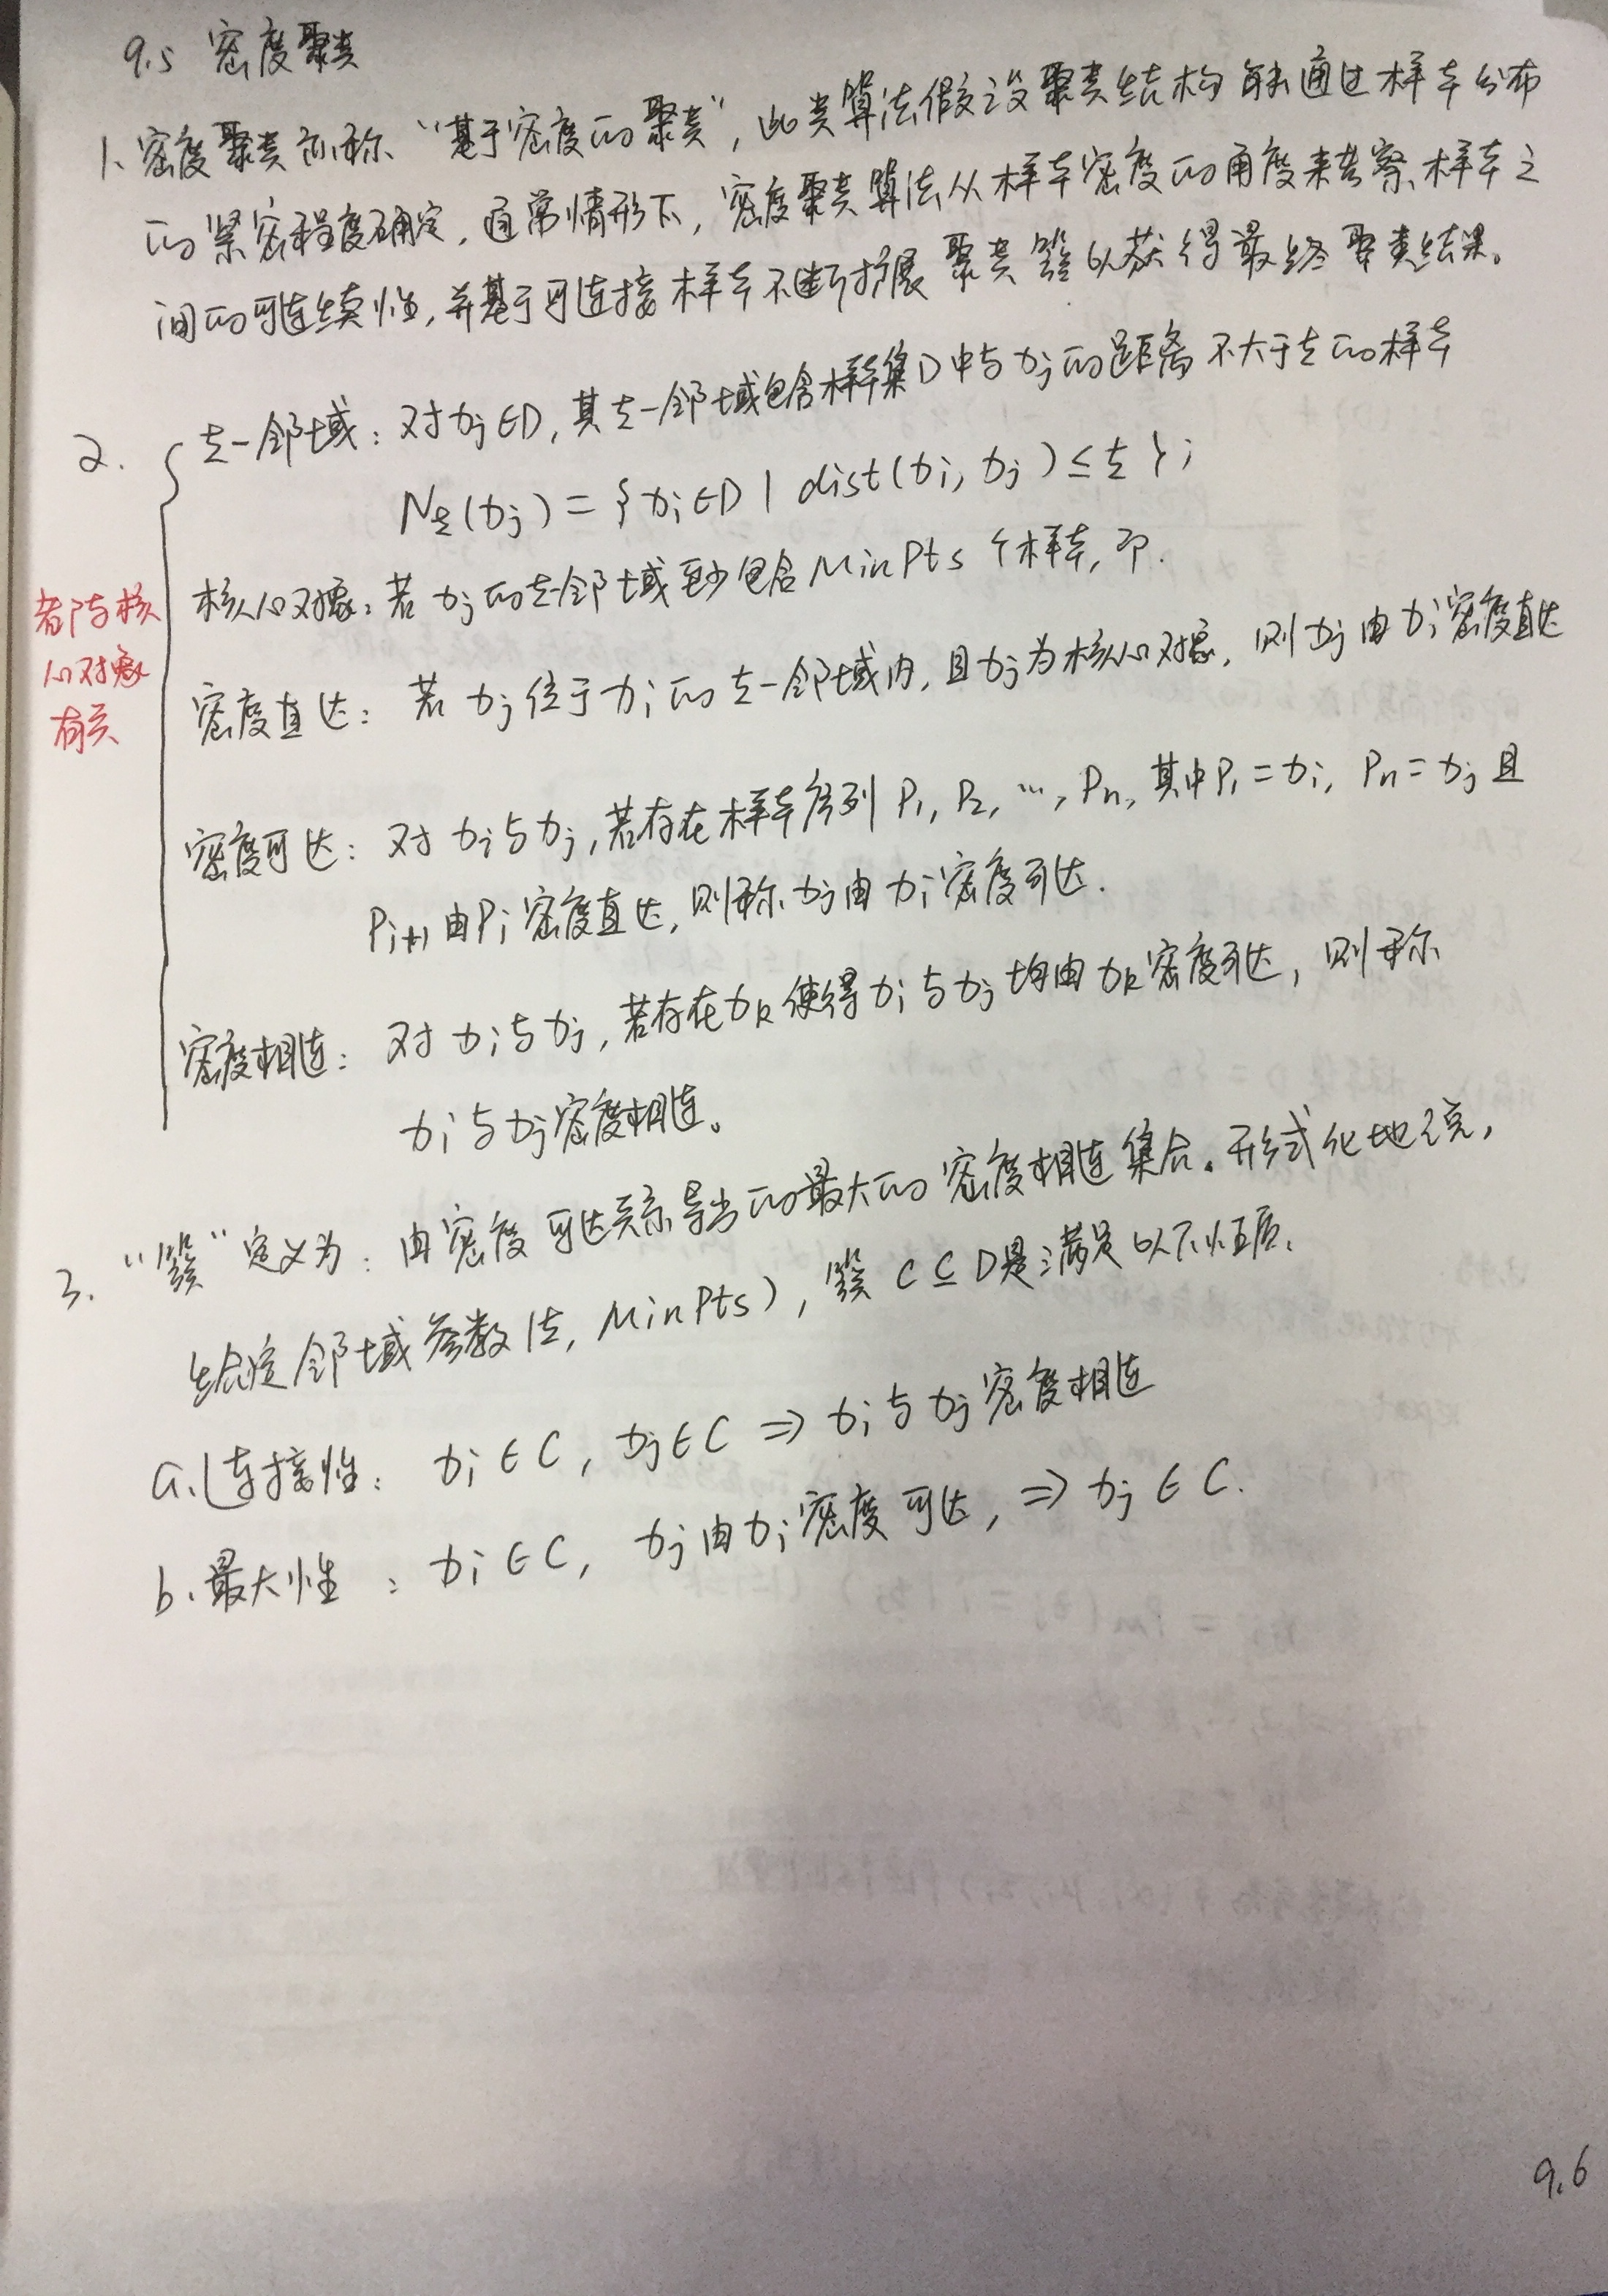 9.5 密度聚类
1. 密度聚类亦称“基于密度的聚类”，此类算法假设聚类结构能通过样本分布
的紧密程度确定，通常情形下，密度聚类算法从样本密度的角度来考察样本之
间的可连续性，并基于可连接样本不断扩展聚类簇以获得最终聚类结果。
2. ξ-邻域：对xj∈D，其ξ-邻域包含样本集D中与xj的距离不大于ξ的样本
Nξ(xj) = {xi∈D | dist(xi, xj) ≤ ξ};
核心对象：若xj的ξ-邻域至少包含MinPts个样本，即.
都与核
心对象
有关
密度直达：若xj位于xi的ξ-邻域内，且xj为核心对象，则xj由xi密度直达
密度可达：对xi与xj，若存在样本序列P1, P2, …, Pn，其中P1=xi, Pn=xj且
Pi+1由Pi密度直达，则称xj由xi密度可达.
密度相连：对xi与xj，若存在xk使得xi与xj均由xk密度可达，则称
xi与xj密度相连。
3. “簇”定义为：由密度可达关系导出的最大的密度相连集合。形式化地说，
给定邻域参数(ξ, MinPts)，簇C⊆D是满足以下性质.
a. 连接性：xi∈C, xj∈C ⇒ xi与xj密度相连
b. 最大性：xi∈C, xj由xi密度可达，⇒ xj∈C.
9.6